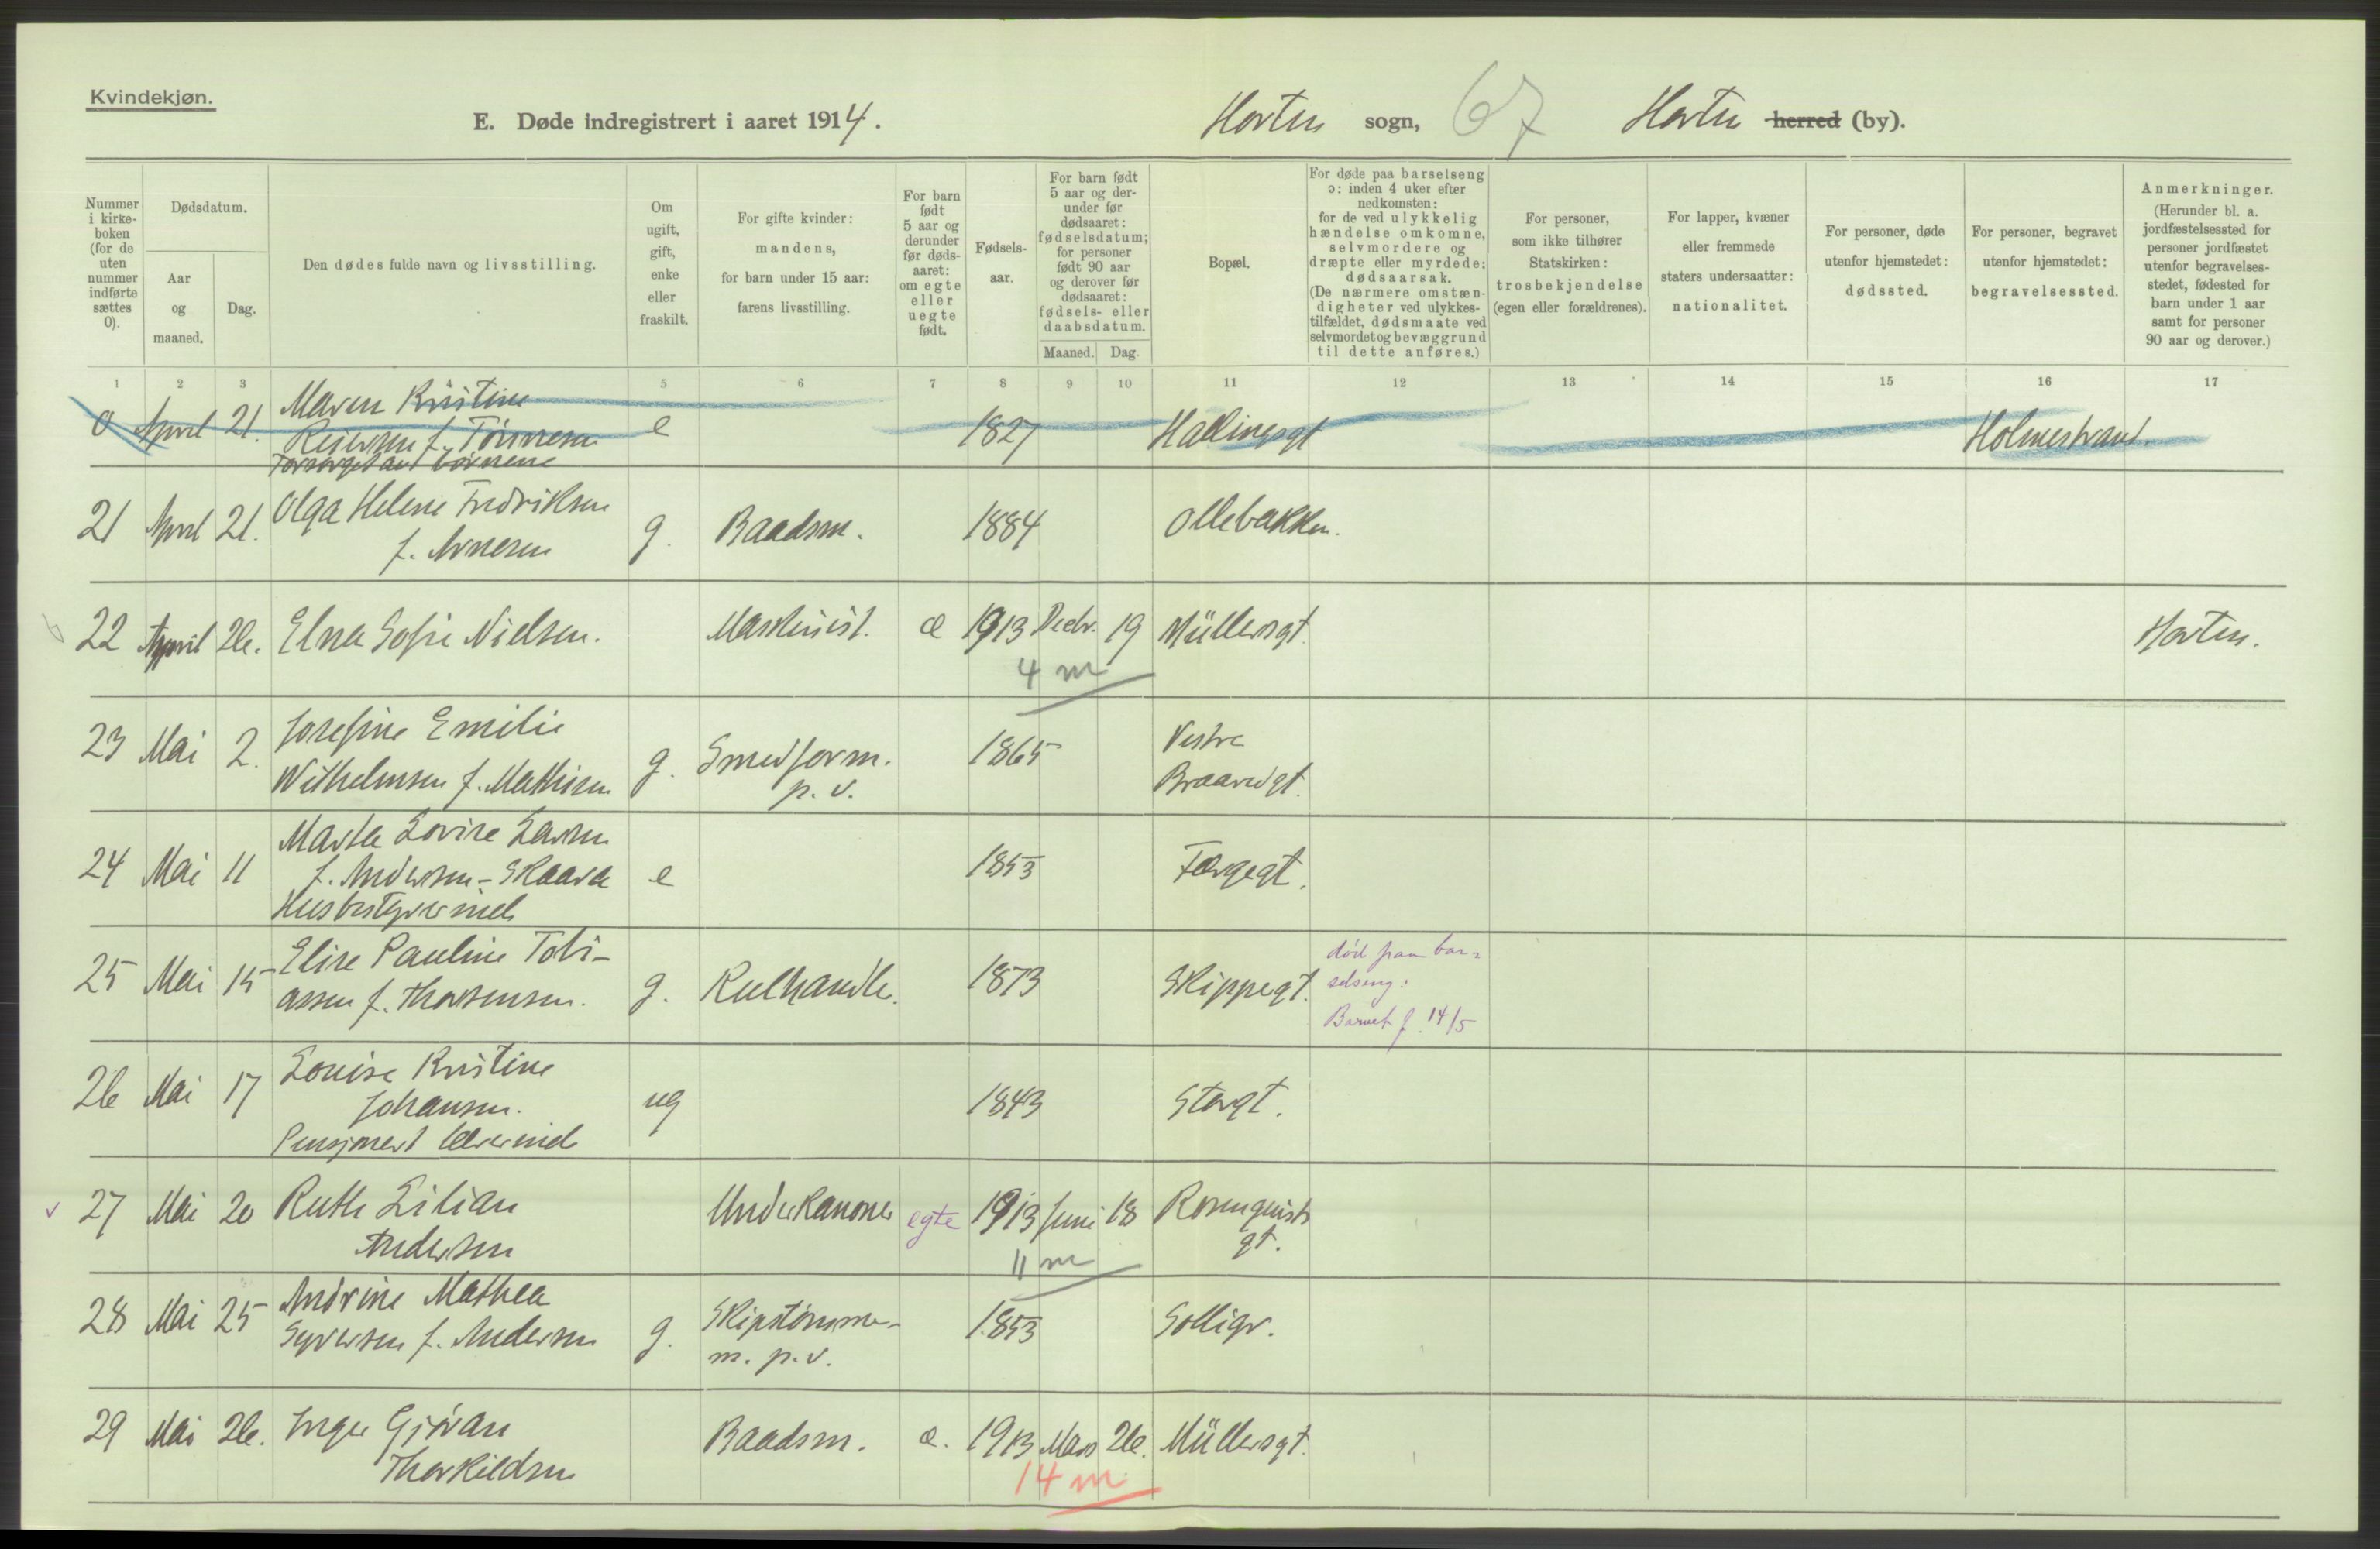 Kvindekjøn.
E. Døde indregistrert i aaret 1914.
Horten sogn, 67 Horten herred (by).
Nummer i kirkeboken (for de uten nummer indførte sættes 0).
Dødsdatum.
Aar og maaned.
Dag.
Den dødes fulde navn og livsstilling.
Om ugift, gift, enke eller fraskilt.
For gifte kvinder: mandens, for barn under 15 aar: farens livsstilling.
For barn født 5 aar og derunder før dødsaaret: om egte eller uegte født.
Fødselsaar.
For barn født 5 aar og derunder før dødsaaret: fødselsdatum; for personer født 90 aar og derover før dødsaaret: fødsels- eller daabsdatum.
Maaned. Dag.
Bopæl.
For døde paa barselseng ɔ: inden 4 uker efter nedkomsten: for de ved ulykkelig hændelse omkomne, selvmordere og dræpte eller myrdede: dødsaarsak. (De nærmere omstændigheter ved ulykkestilfældet, dødsmaate ved selvmordet og bevæggrund til dette anføres.)
For personer, som ikke tilhører Statskirken: trosbekjendelse (egen eller forældrenes).
For lapper, kvæner eller fremmede staters undersaatter: nationalitet.
For personer, døde utenfor hjemstedet: dødssted.
For personer, begravet utenfor hjemstedet: begravelsessted.
Anmerkninger. (Herunder bl. a. jordfæstelsessted for personer jordfæstet utenfor begravelsesstedet, fødested for barn under 1 aar samt for personer 90 aar og derover.)
1 2 3 4 5 6 7 8 9 10 11 12 13 14 15 16 17
0 April 21. Maren Kristine
Reiersen f. Tønnesen e 1827 Hallingsgt Holmestrand.
Forsørget av børnene
21 April 21. Olga Helene Fredriksen
f. Arnesen g. Baadsm. 1884 Ollebakken.
22 April 26. Elna Sofie Nielsen. Maskinist. æ 1913 Decbr. 19 Müllersgt. Horten.
4 m
23 Mai 2. Josefine Emilie
Wilhelmsen f. Mathisen g. Smedform. p. v. 1865 Vestre Braarudgt.
24 Mai 11 Marta Lovise Larsen
f. Andersen-Skaara e 1853 Færgegt.
Husbestyrerinde
25 Mai 15 Elise Pauline Tobi-
assen f. Thorsensen. g. Kulhandler. 1873 Skippergt. død paa bar-
selseng:
Barnet f. 14/5
26 Mai 17 Louise Kristine
Johansen. ug 1843 Storgt.
Pensjonert lærerinde
27 Mai 20 Ruth Lilian
Andersen Underkanoner egte 1913 Juni 18 Rosenquists gt.
11 m
28 Mai 25 Andrine Mathea
Syversen f. Andersen g. Skipstømme-
m. p. v. 1853 Solligr.
29 Mai 26. Inger Gjøvan
Thorkildsen Baadsm. æ. 1913 Mars 26. Müllersgt.
14 m